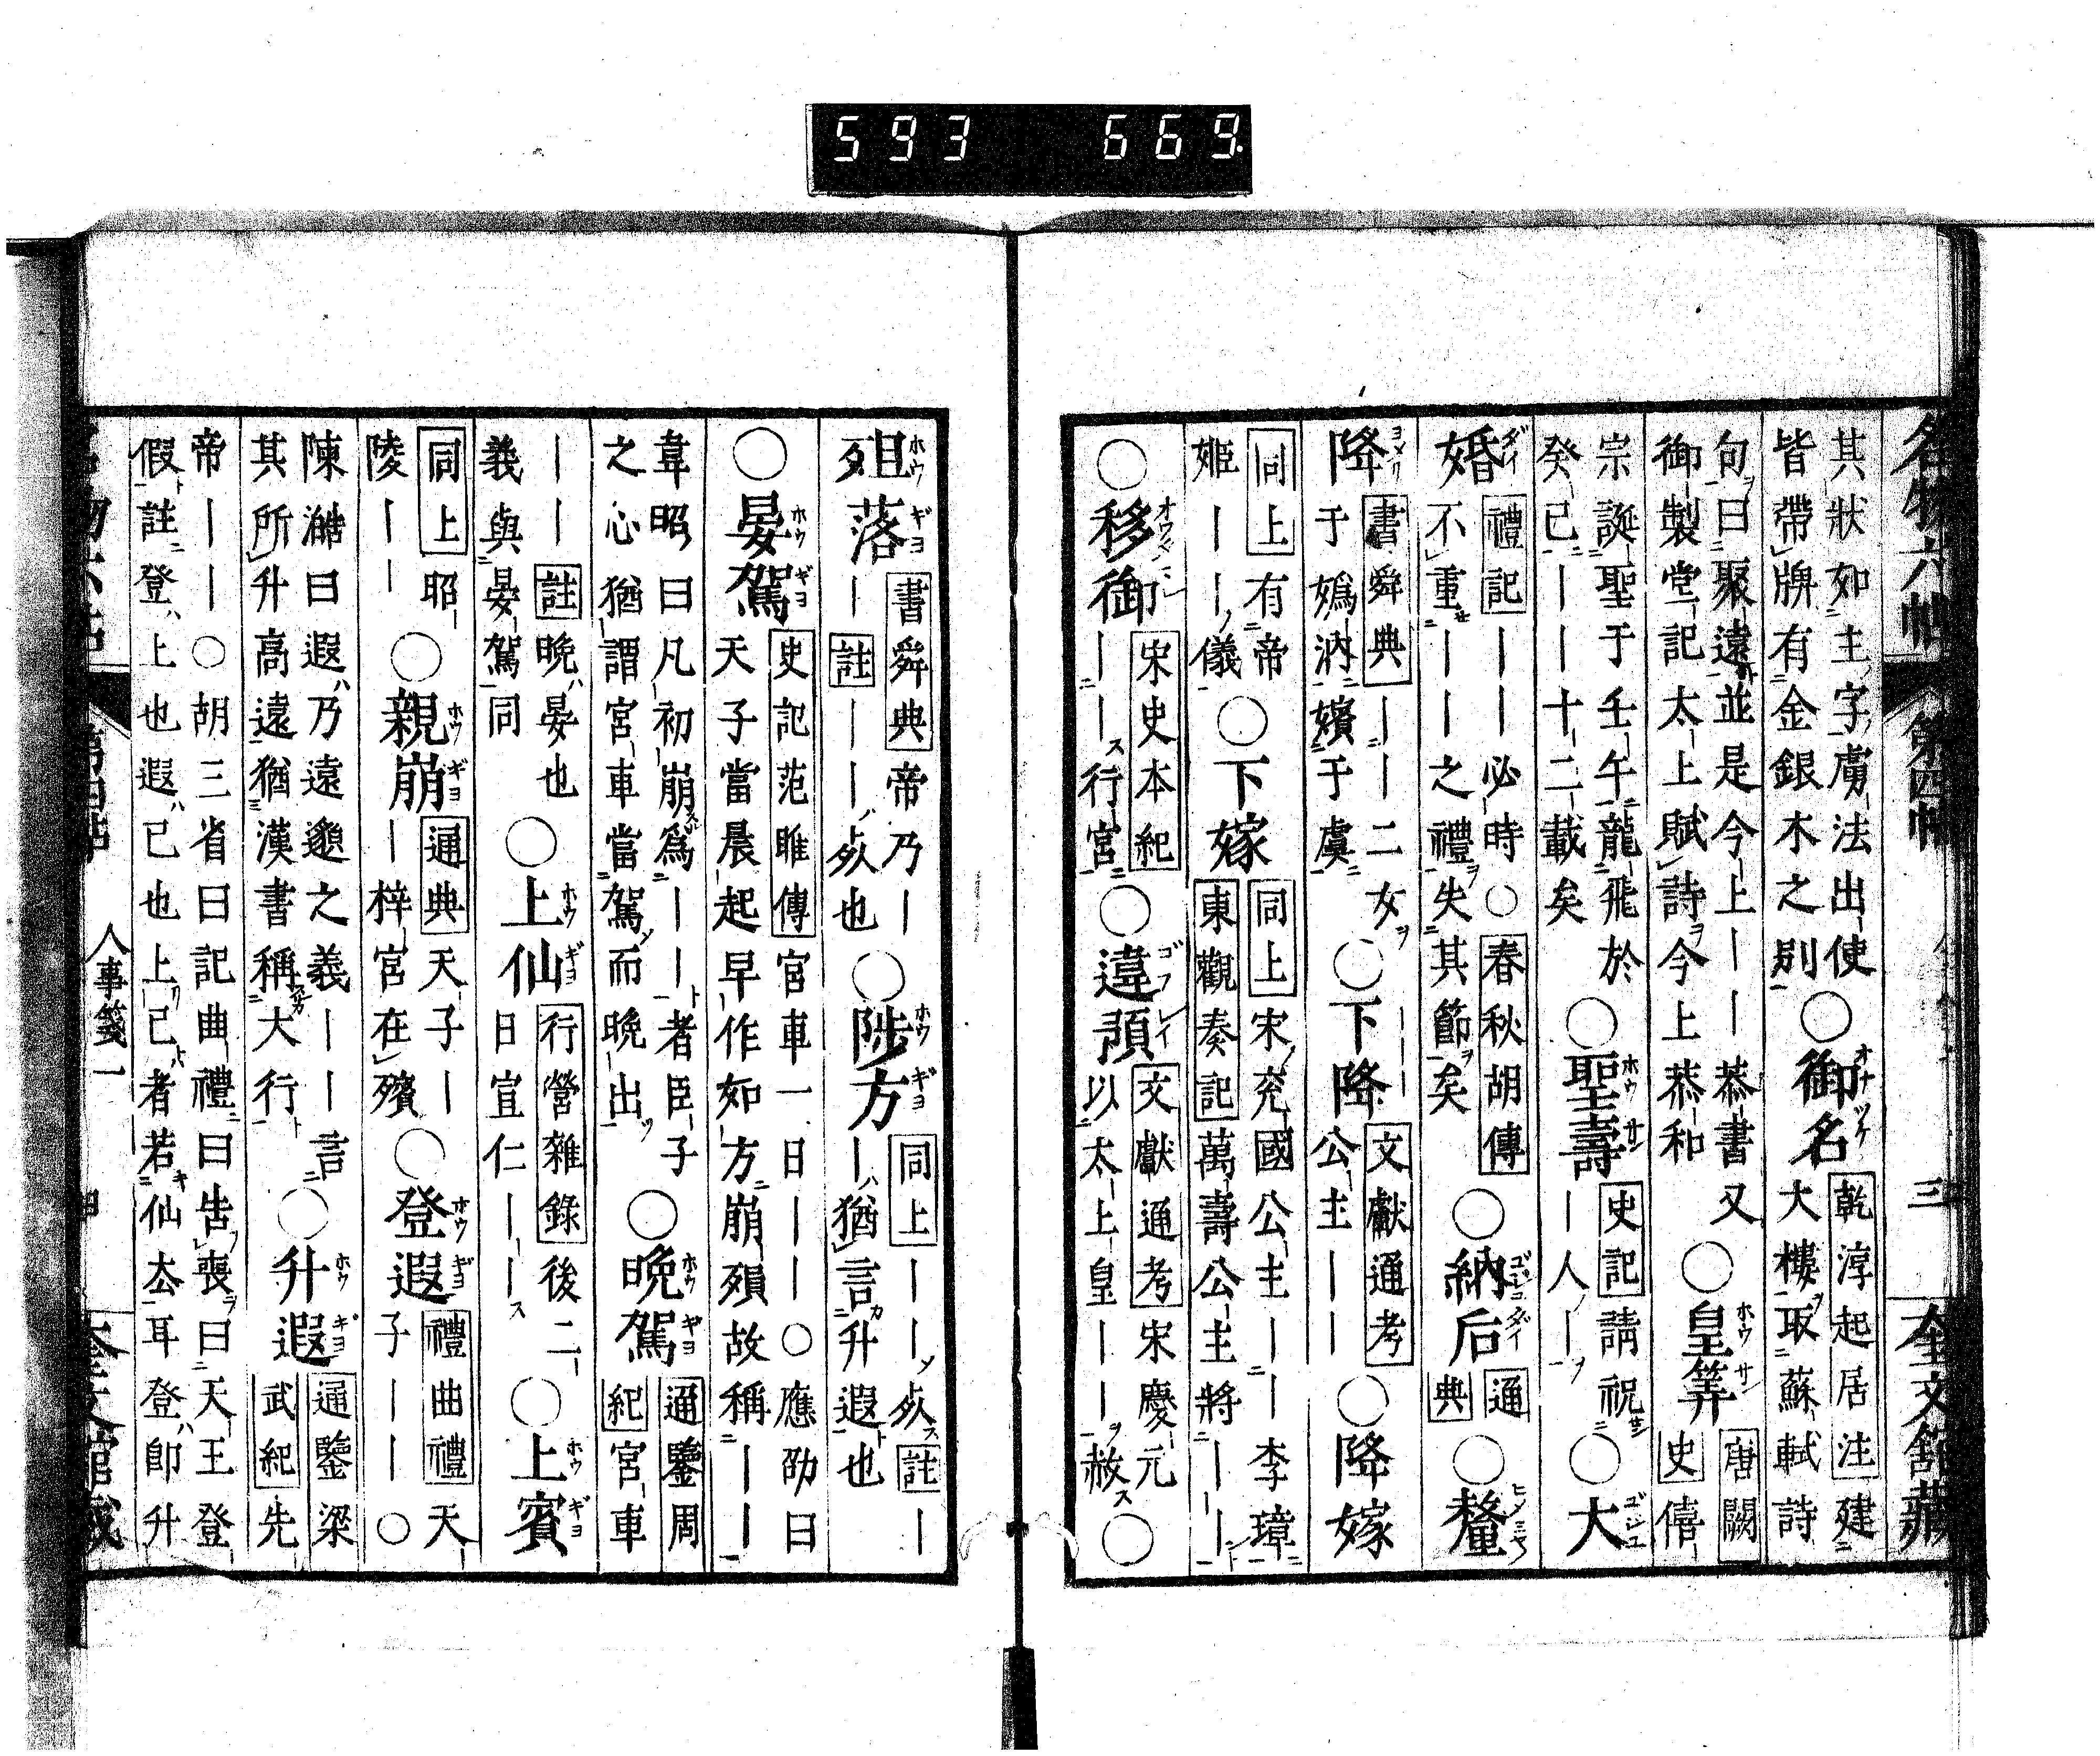 593 669
名物六帖 第四帖 三 奎文館藏
其狀如主字虜法出使
皆帶牌有金銀木之別
○御名
乾淳起居注建
大樓取蘇軾詩
句曰聚遠並是今上――恭書又
御製堂記太上賦詩今上恭和
○皇筭
唐闕
史僖
宗誕聖于壬午龍飛於
癸巳――十二載矣
○聖壽
史記請祝
―人―
○大
婚
禮記――必時○春秋胡傳
不重――之禮失其節矣
○納后
通
典
○釐
降
書舜典――二女
于嬀汭嬪于虞
○下降
文獻通考
公主――
○降嫁
同上有帝
姬――儀
○下嫁
同上宋兗國公主――李璋
東觀奏記萬壽公主將――
○移御
宋史本紀
――行宮
○違預
文獻通考宋慶元
以太上皇――赦
○
殂落
書舜典帝乃―
―註――死也
○陟方
同上――死註―
―猶言升遐也
○晏駕
史記范雎傳宮車一日――○應劭曰
天子當晨起早作如方崩殞故稱――
韋昭曰凡初崩爲――者臣子
之心猶謂宮車當駕而晩出
○晩駕
通鑒周
紀宮車
――註晩晏也
義與晏駕同
○上仙
行營雜錄後二
日宣仁――
○上賓
同上昭
陵――
○親崩
通典天子―
―梓宮在殯
○登遐
禮曲禮天
子――○
陳澔曰遐乃遠邈之義――言
其所升高遠猶漢書稱大行
○升遐
通鑒梁
武紀先
帝――○胡三省曰記曲禮曰告喪曰天王登
假註登上也遐已也上已者若仙去耳登卽升
人事箋一